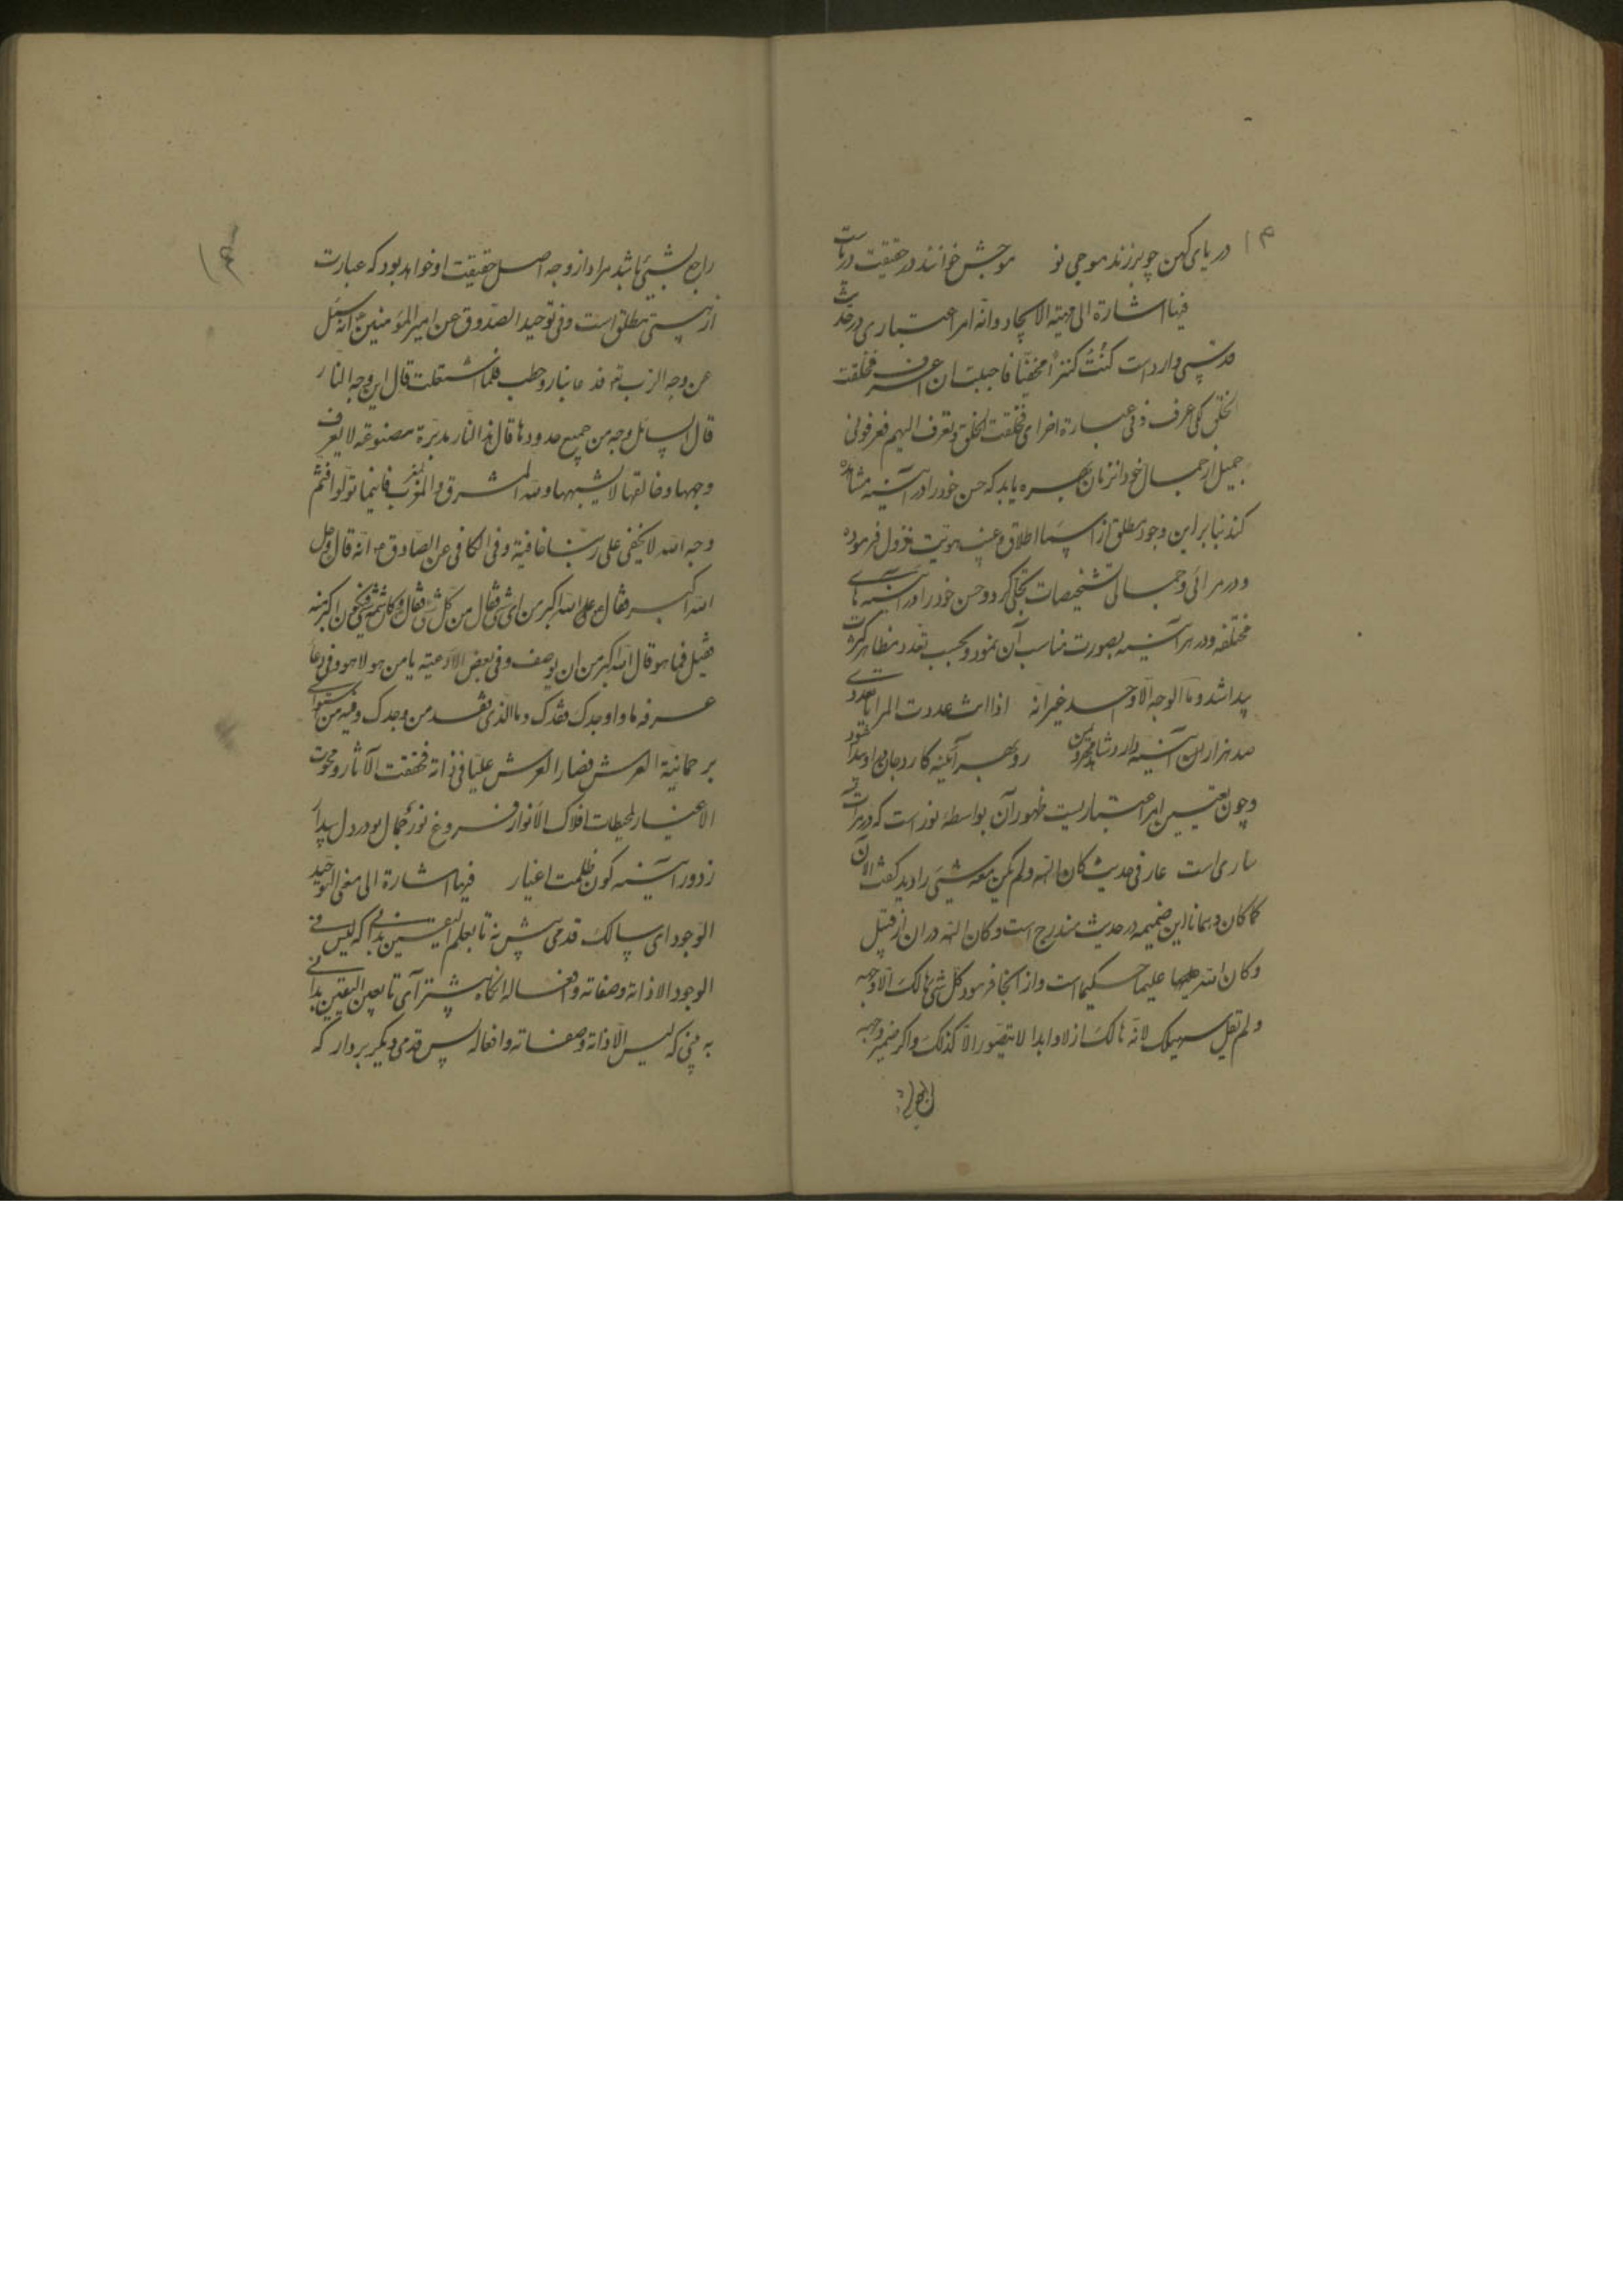 دریای کهن چو برزند موجی نو موجش خوانند در حقیقت دریاست
فیها اشارة الی مهیّة الایجاد وانّه امر اعتباری در حدیث
قدسی وارد است کُنتُ کنزاً مخفیّاً فاحببت ان اعرف فخلقت
الخلق لکی اعرف و فی عبارة اخرای فخلقت الخلق وتعرفت الیهم فعرفونی
جمیل از جمال خود انزمان بهره یابد که حسن خود را در آئینه مشاهده
کند بنابراین وجود مطلق از سماء اطلاق و غیب هویت نزول فرموده
و در مرائی و مجالی تشخیصات تجلّی کرد و حسن خود را در آئینه‌های
مختلفه و در هر آئینه بصورت مناسب آن نمود و بحسب تعدد مظاهر کثرت
پیدا شد وما الوجه الّا واحد غیر انّه اذا انت عددت المرایا تعددی
صد هزاران آئینه دارد شاهد رو بهر آئینه کارد جان در او پیدا شود
و چون تعیین امر اعتباریست ظهور آن بواسطه نور است که در مرآت
ساری است عارفی حدیث کان الله ولم یکن معه شیئ را دید گفت الآن
کما کان و همانا این ضمیمه در حدیث مندرج است و کان الله در ان از قبیل
و کان الله علیما حکیما است و از اینجا فرمود کل شئ هالک الّا وجهه
و لم تقل سیهلک لانّه هالک ازلا و ابدا لا یتصور الّا کذلک و اگر ضمیر وجهه
راجع بشیئ باشد مراد از وجه اصل حقیقت او خواهد بود که عبارت
از هستی مطلق است و فی توحید الصدوق عن امیر المؤمنین انّه سئل
عن وجه الربّ فدعا بنار و حطب فلما اشتعلت قال این وجه النار
قال السائل وجه من جمیع حدودها قال هذا النار مدبّرة مصنوعة لا یعرف
وجهها وخالقها لا یشبهها ولله المشرق والمغرب فاینما تولّوا فثم
وجه الله لا یخفی علی ربنا خافیة و فی الکافی عن الصادق انّه قال رجل
الله اکبر فقال علی الله اکبر من ای شئ فقال من کل شئ فقال وکان ثمّ شئ فیکون اکبر منه
فقیل فما هو قال الله اکبر من ان یوصف و فی بعض الادعیة یا من هو لا هو و فی دعا
عرفه ماذا وجدک فقدک وما الذی فقد من وجدک و فیه من استوی
برحمانیّة العرش فصار العرش غیبا فی ذاته فمحقت الآثار و محوت
الاغیار بمحیطات افلاک الانوار فروغ نور جمال بود در دل پیدا
زدود ز آئینه کون ظلمت اغیار فیها اشارة الی معنی التوحید
الوجود ای سالک قدمی پیش نه تا بعلم الیقین بدانی که لیس فی
الوجود الّا ذاته و صفاته و افعاله انگاه پیشتر آی تا بعین الیقین
به بینی که لیس الّا ذاته و صفاته و افعاله پس قدمی دیگر بردار که